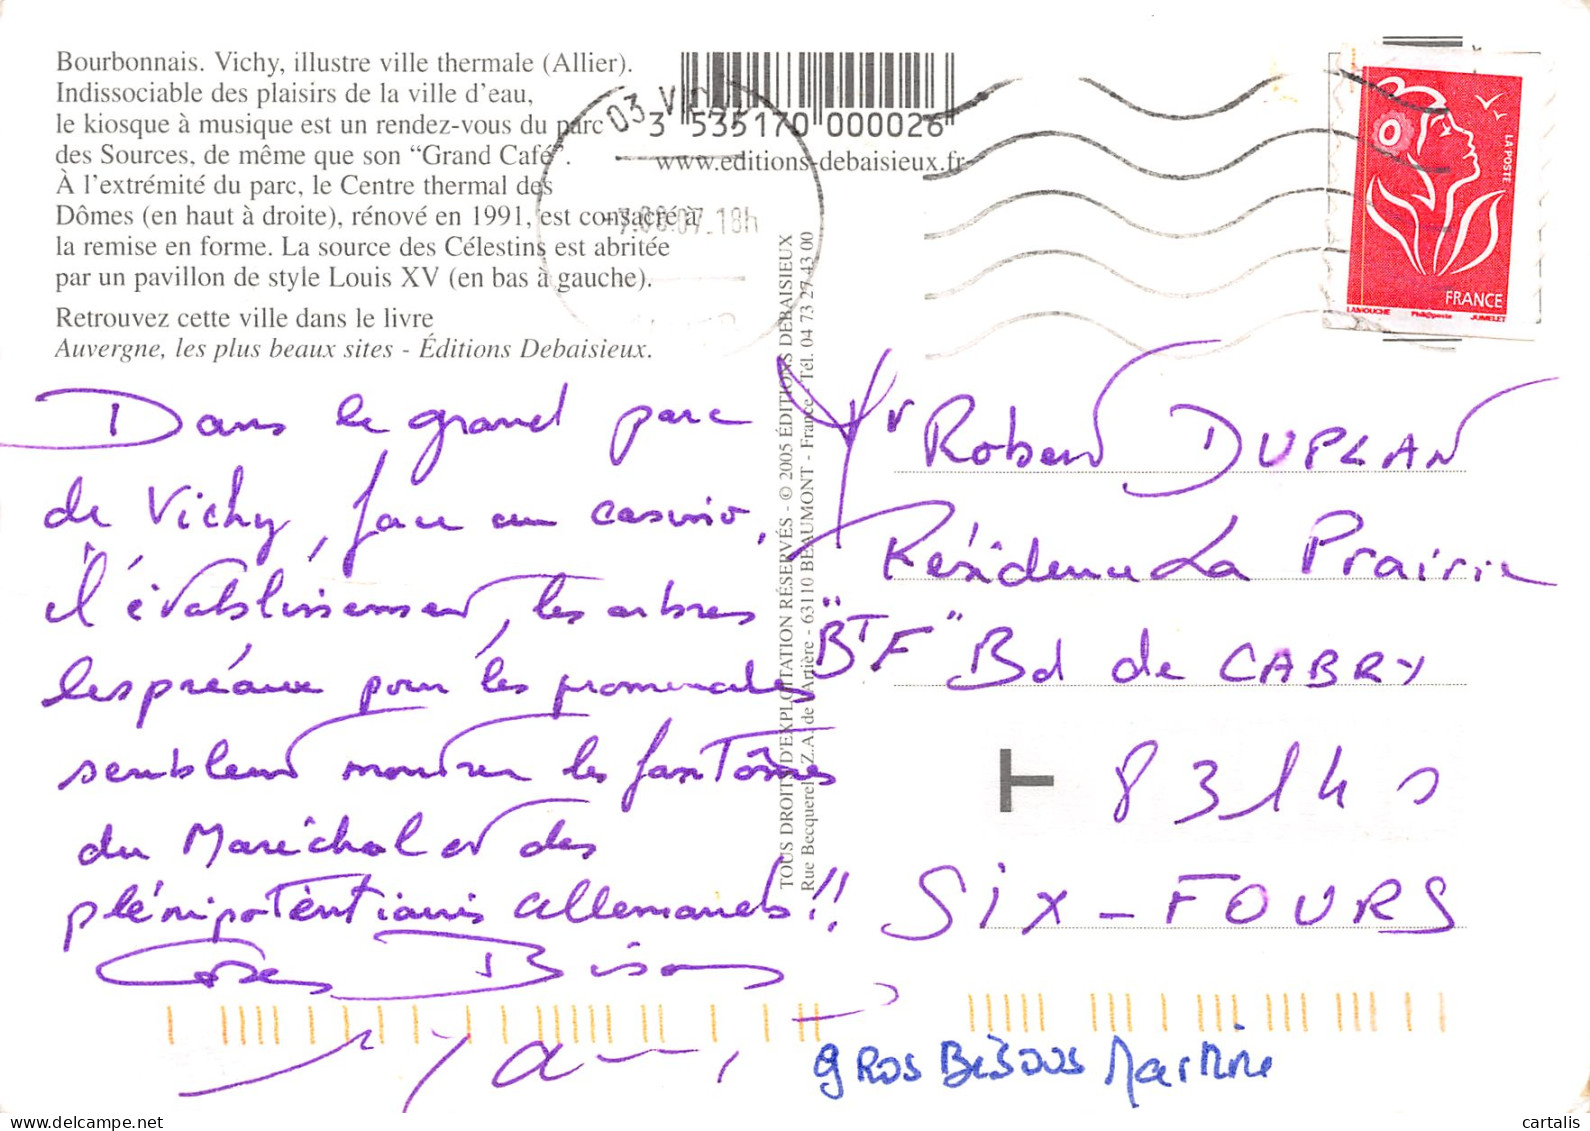 Bourbonnais. Vichy, illustre ville thermale (Allier).
Indissociable des plaisirs de la ville d'eau,
le kiosque à musique est un rendez-vous du parc
des Sources, de même que son “Grand Café”.
À l'extrémité du parc, le Centre thermal des
Dômes (en haut à droite), rénové en 1991, est consacré à
la remise en forme. La source des Célestins est abritée
par un pavillon de style Louis XV (en bas à gauche).
Retrouvez cette ville dans le livre
Auvergne, les plus beaux sites - Éditions Debaisieux.
3 535170 000026
www.editions-debaisieux.fr
03 VICHY
07 18h
LA POSTE
FRANCE
LAMOUCHE Phil@poste JUMELET
TOUS DROITS D'EXPLOITATION RÉSERVÉS - © 2005 ÉDITIONS DEBAISIEUX
Rue Becquerel - Z.A. de l'Artière - 63110 BEAUMONT - France - Tél. 04 73 27 43 00
Dans le grand parc
de Vichy, face au casino,
l'établissement, les arbres
les préaux pour les promenades
semblent montrer les fantômes
du Maréchal et des
plénipotentiaires allemands !!
Gros Bisous
gros Bisous Martine
Mr Robert DUPLAN
Résidence La Prairie
"BT F" Bd de CABRY
T 83140
SIX-FOURS